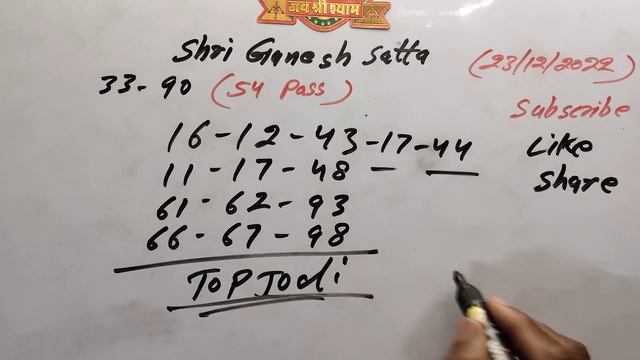 जय श्री श्याम
Shri Ganesh Satta
(23/12/2022)
33-90 (54 Pass)
Subscribe
Like
Share
16-12-43-17-44
11-17-48-
61-62-93
66-67-98
TOP JOdi